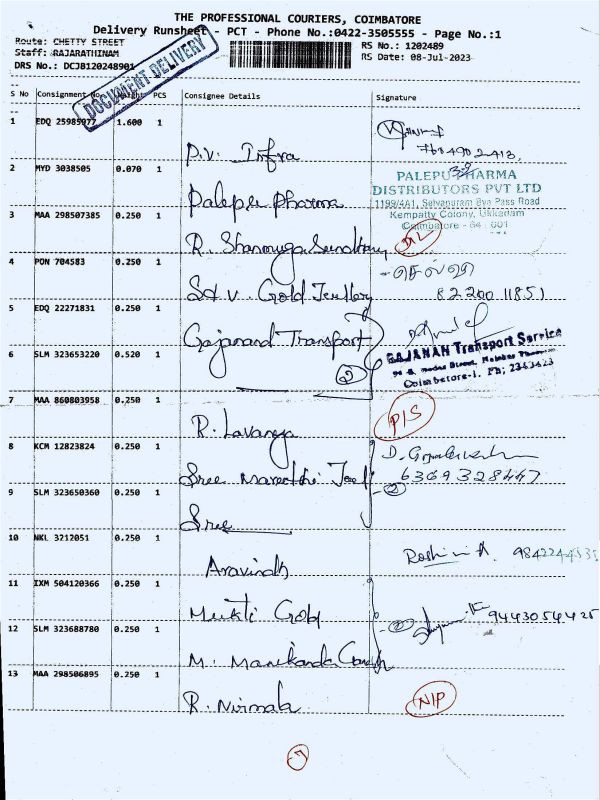 THE PROFESSIONAL COURIERS, COIMBATORE
Delivery Runsheet - PCT - Phone No.:0422-3505555 - Page No.:1
Route: CHETTY STREET
RS No.: 1202489
Staff: RAJARATHINAM
RS Date: 08-Jul-2023
DRS No.: DCJB120248901
DOCUMENT DELIVERY
S No Consignment No. Weight PCS Consignee Details Signature
1 EDQ 25985977 1.600 1
P.V. Infra
2 MYD 3038505 0.070 1
Palepu Pharma
PALEPU PHARMA
DISTRIBUTORS PVT LTD
1199/4A1, Selvapuram Bye Pass Road
Kempatty Colony, Ukkadam
Coimbatore - 641 001
3 MAA 298507385 0.250 1
R. Shanmuga Sundhary
4 PON 704583 0.250 1
Gold Jewllery
82200 11851
5 EDQ 22271831 0.250 1
Gajanand Transport
GAJANAN Transport Service
Coimbatore-1. Ph; 2343423
6 SLM 323653220 0.520 1
2
7 MAA 860803958 0.250 1
R. Lavanya
P/S
8 KCM 12823824 0.250 1
Sree Jewl
6369328447
2
9 SLM 323650360 0.250 1
Sree
10 NKL 3212051 0.250 1
Aravindh
Roshini A
11 IXM 504120366 0.250 1
Mukti Gold
2
9443054425
12 SLM 323688780 0.250 1
M. Manikanda
13 MAA 298506895 0.250 1
R. Nirmala
N/P